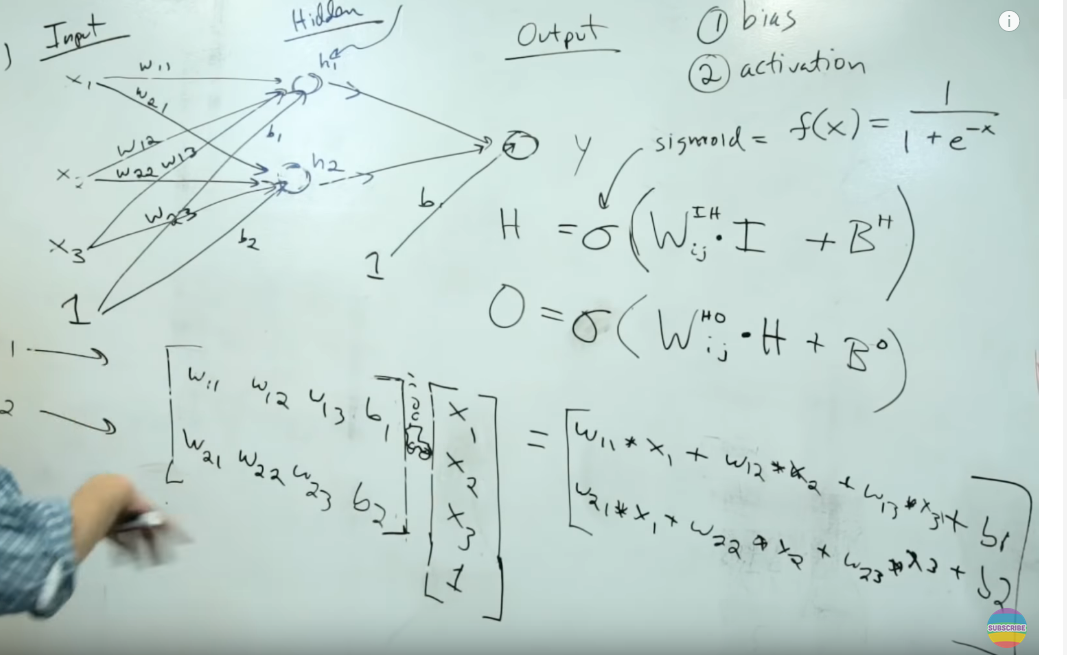 Input
Hidden
Output
① bias
② activation
x₁ w₁₁ h₁
w₂₁
sigmoid = f(x) = 1 / (1 + e^-x)
w₁₂ w₁₃ b₁
x₂ w₂₂ h₂ y
w₂₃
x₃ b₂ b
1 1
H = σ(W_ij^IH · I + B^H)
O = σ(W_ij^HO · H + B^O)
1 →
2 →
[w₁₁ w₁₂ w₁₃ b₁
w₂₁ w₂₂ w₂₃ b₂]
[x₁
x₂
x₃
1]
= [w₁₁ * x₁ + w₁₂ * x₂ + w₁₃ * x₃ + b₁
w₂₁ * x₁ + w₂₂ * x₂ + w₂₃ * x₃ + b₂]
SUBSCRIBE